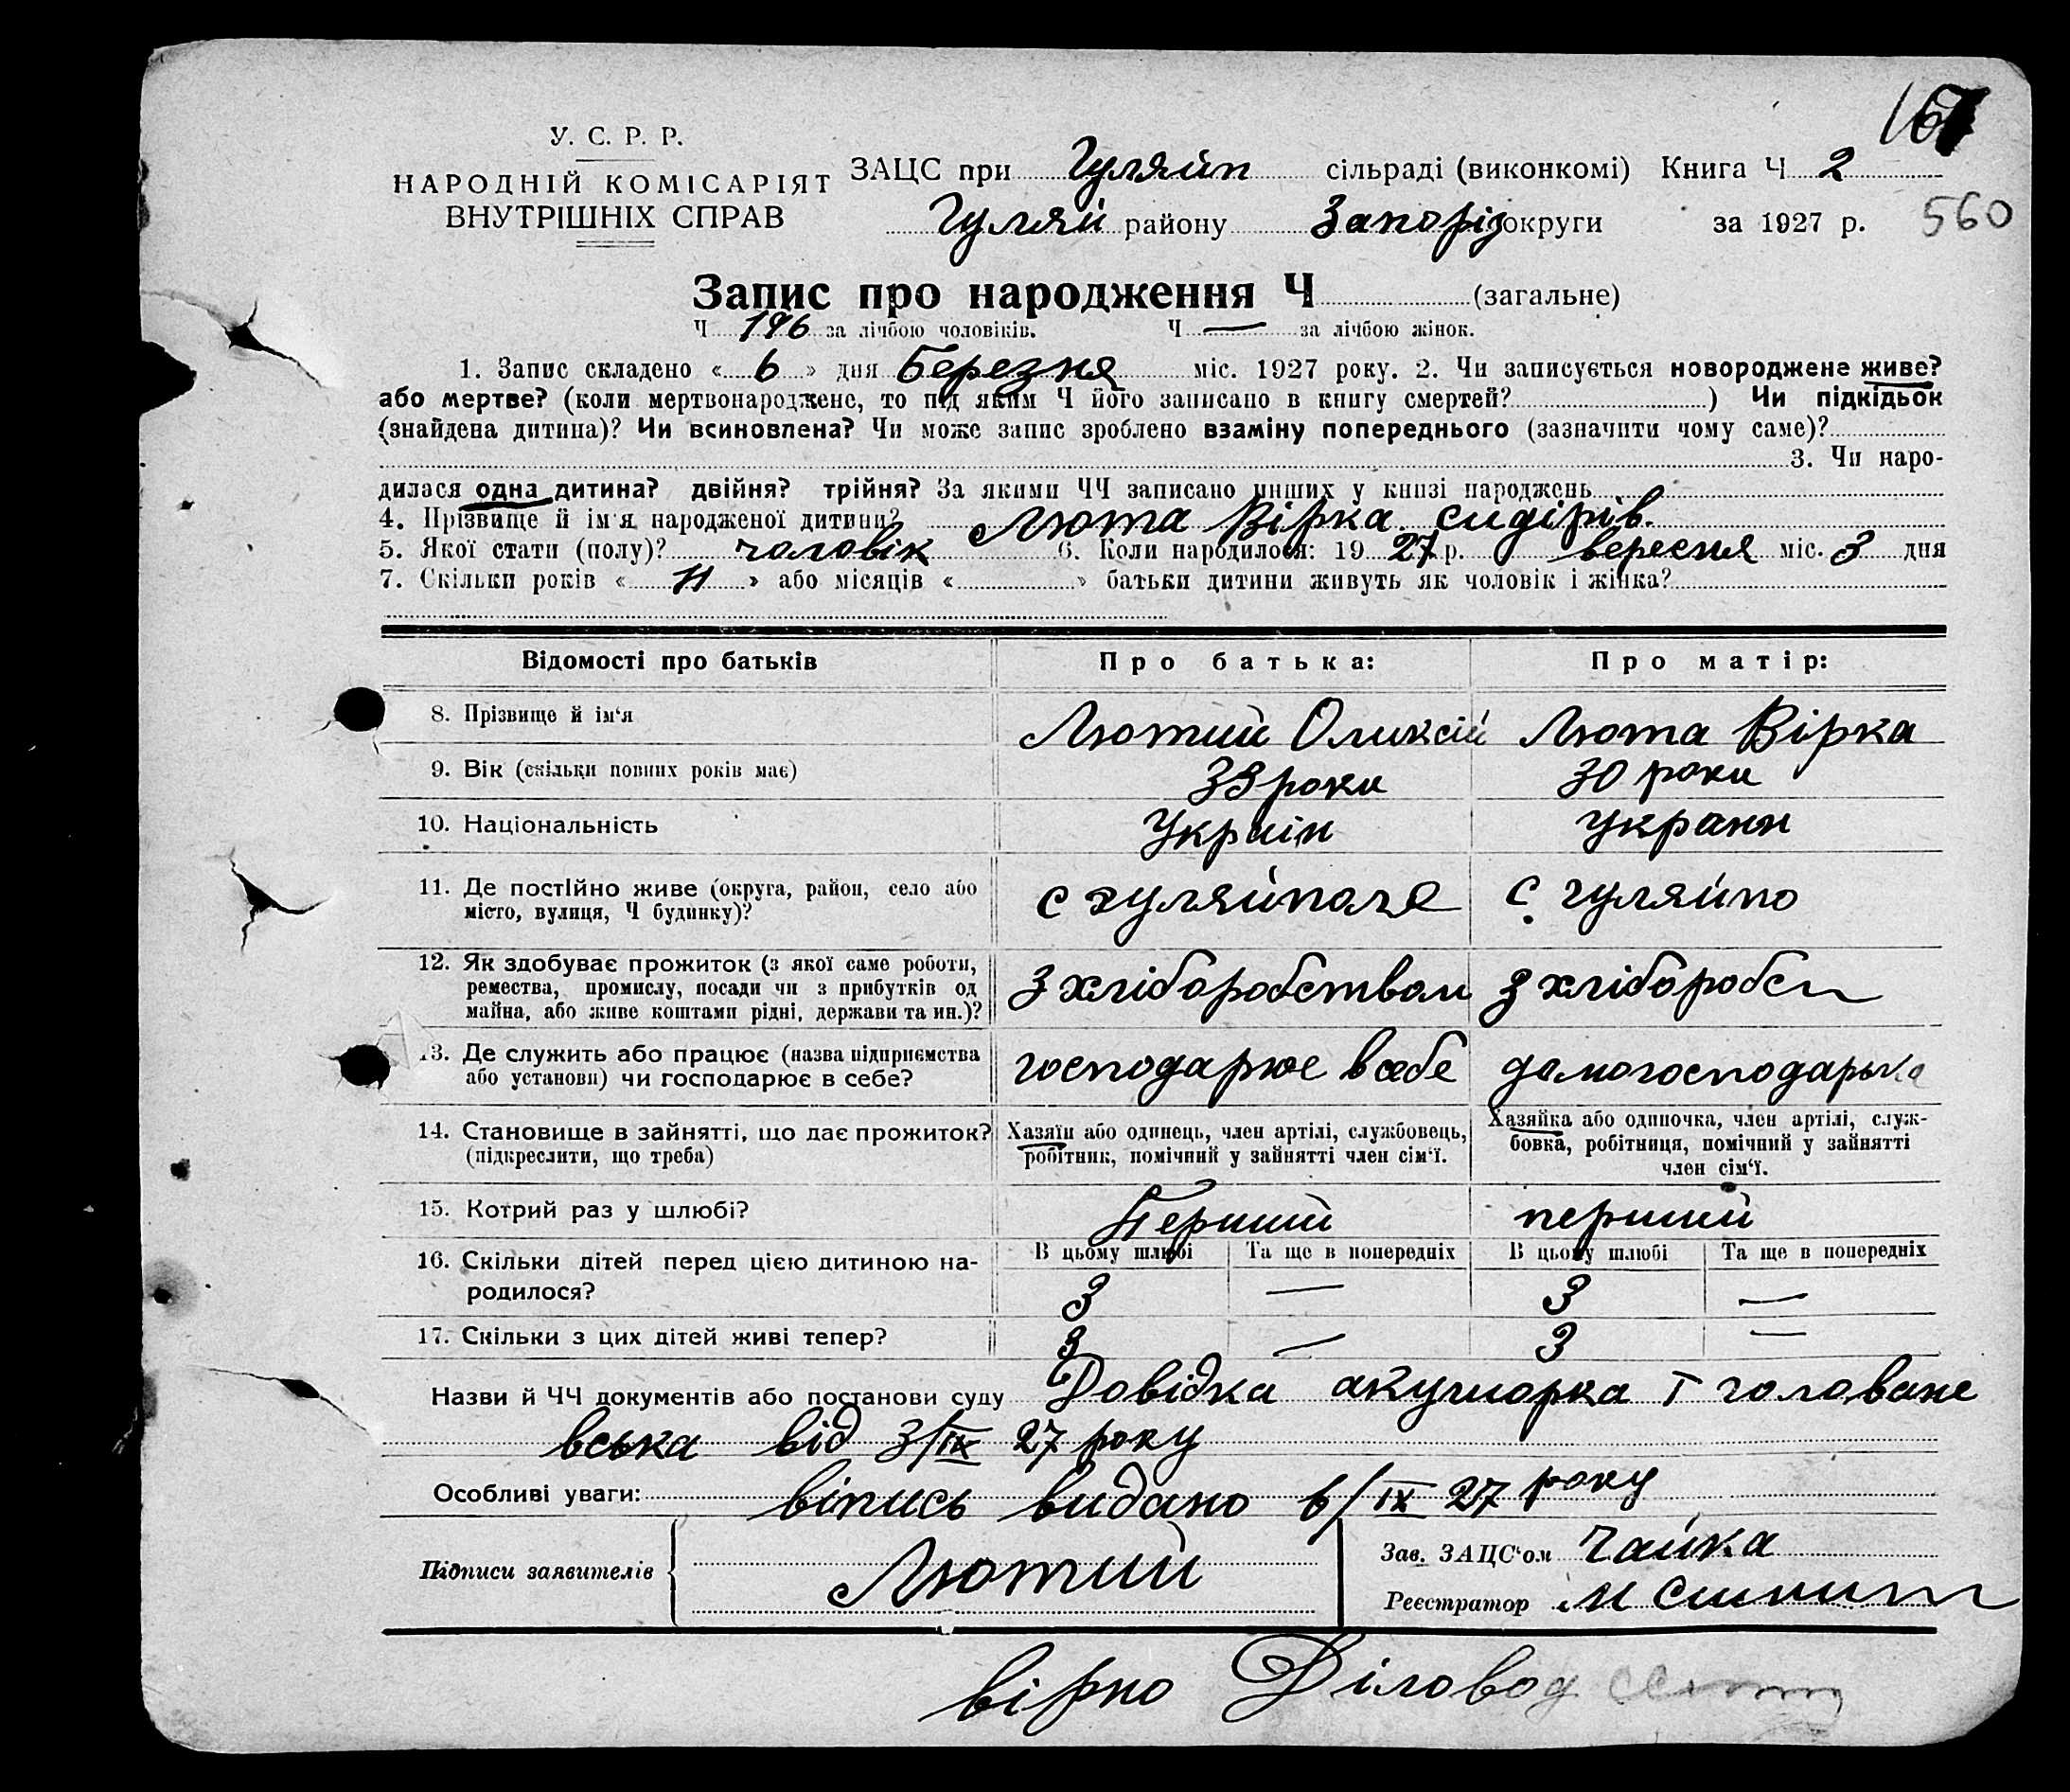 У. С. Р. Р.
НАРОДНІЙ КОМІСАРІЯТ
ВНУТРІШНІХ СПРАВ
ЗАЦС при Гуляйп сільраді (виконкомі) Книга Ч 2
Гуляй району Запоріз округи за 1927 р. 560
Запис про народження Ч (загальне)
Ч 196 за лічбою чоловіків. Ч — за лічбою жінок.
1. Запис складено « 6 » дня Березня міс. 1927 року. 2. Чи записується новороджене живе?
або мертве? (коли мертвонароджене, то під яким Ч його записано в книгу смертей? ) Чи підкідьок
(знайдена дитина)? Чи всиновлена? Чи може запис зроблено взаміну попереднього (зазначити чому саме)?
3. Чи наро-
дилася одна дитина? двійня? трійня? За якими ЧЧ записано инших у книзі народжень
4. Прізвище й ім'я народженої дитини? Люта Вірка. сидірів.
5. Якої стати (полу)? чоловік 6. Коли народилося: 19 27 р. вересня міс. 3 дня
7. Скільки років « 11 » або місяців « » батьки дитини живуть як чоловік і жінка?
Відомості про батьків Про батька: Про матір:
8. Прізвище й ім'я Лютий Олексій Люта Вірка
9. Вік (скільки повних років має) 33 роки 30 роки
10. Національність Украін украин
11. Де постійно живе (округа, район, село або
місто, вулиця, Ч будинку)? с гуляйполе с. гуляйпо
12. Як здобуває прожиток (з якої саме роботи,
ремества, промислу, посади чи з прибутків од
майна, або живе коштами рідні, держави та ин.)? З хліборобством З хліборобст
13. Де служить або працює (назва підприємства
або установи) чи господарює в себе? господарює в себе домогосподарька
14. Становище в зайнятті, що дає прожиток?
(підкреслити, що треба)
Хазяїн або одинець, член артілі, службовець,
робітник, помічний у зайнятті член сім'ї.
Хазяйка або одиночка, член артілі, служ-
бовка, робітниця, помічний у зайнятті
член сім'ї.
15. Котрий раз у шлюбі? Перший перший
16. Скільки дітей перед цією дитиною на-
родилося?
В цьому шлюбі Та ще в попередніх В цьому шлюбі Та ще в попередніх
3 — 3 —
17. Скільки з цих дітей живі тепер? 3 — 3 —
Назви й ЧЧ документів або постанови суду Довідка акушорка Г головане
вська від 3/IX 27 року
Особливі уваги: віпись видано 6/IX 27 року
Підписи заявителів Лютий
Зав. ЗАЦС'ом Чайка
Реєстратор М
вірно Діловод